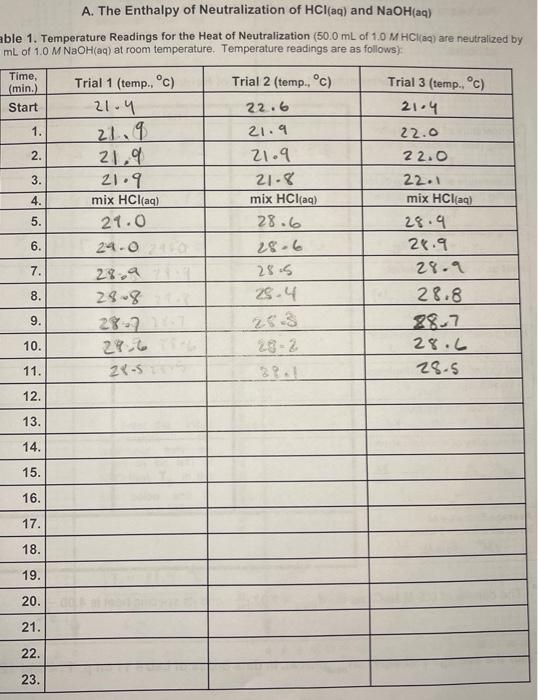 A. The Enthalpy of Neutralization of HCl(aq) and NaOH(aq)
able 1. Temperature Readings for the Heat of Neutralization (50.0 mL of 1.0 M HCl(aq) are neutralized by
mL of 1.0 M NaOH(aq) at room temperature. Temperature readings are as follows):
Time, (min.) Trial 1 (temp., °C) Trial 2 (temp., °C) Trial 3 (temp., °C)
Start 21.4 22.6 21.4
1. 21.9 21.9 22.0
2. 21.9 21.9 22.0
3. 21.9 21.8 22.1
4. mix HCl(aq) mix HCl(aq) mix HCl(aq)
5. 29.0 28.6 28.9
6. 29.0 28.6 28.9
7. 28.9 28.5 28.9
8. 28.8 28.4 28.8
9. 28.7 28.3 28.7
10. 28.2 28.6
11. 28.5 28.5
12.
13.
14.
15.
16.
17.
18.
19.
20.
21.
22.
23.